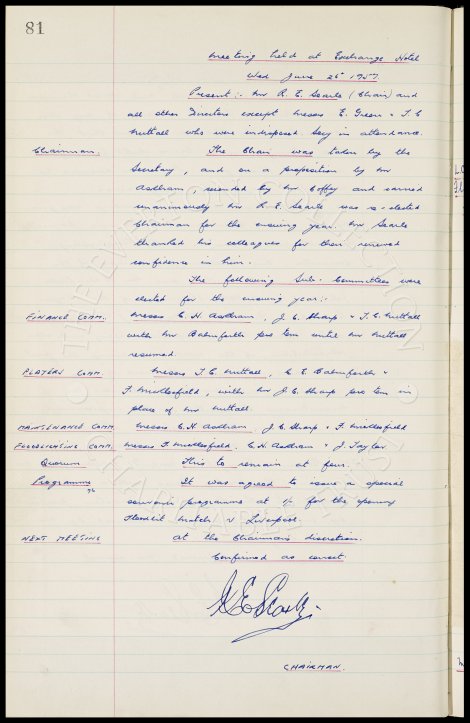 81
Meeting held at Exchange Hotel
Wed June 26th 1957.
Present:- Mr R. E. Searle (Chair) and
all other Directors except Messrs E. Green & T. C.
Nuttall who were indisposed Secy in attendance.
Chairman. The Chair was taken by the
Secretary, and on a proposition by Mr
Askham, seconded by Mr Coffey and carried
unanimously Mr R. E. Searle was re-elected
Chairman for the ensuing year. Mr Searle
thanked his colleagues for their renewed
confidence in him.
The following Sub. Committees were
elected for the ensuing year:-
FINANCE COMM. Messrs C. H. Askham, J. C. Sharp & T. C. Nuttall
with Mr Balmforth pro tem until Mr Nuttall
resumed
PLAYERS COMM. Messrs T. C. Nuttall, C. E. Balmforth &
F. Micklesfield, with Mr J. C. Sharp pro tem in
place of Mr Nuttall.
MAINTENANCE COMM Messrs C. H. Askham, J. C. Sharp & F. Micklesfield
FLOODLIGHTING COMM. Messrs F. Micklesfield, C. H. Askham & J. Taylor
Quorum This to remain at four.
Programme It was agreed to issue a special
souvenir programme at 1/- for the opening
Floodlit match v Liverpool.
NEXT MEETING At the Chairmans discretion.
Confirmed as correct.
R E Searle
CHAIRMAN.
THE EVERTON COLLECTION
CHARITABLE TRUST